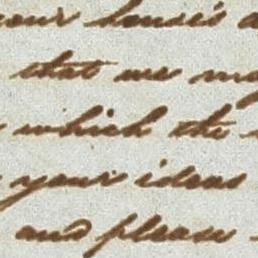 your houses
that we
which the
your ideas
and please